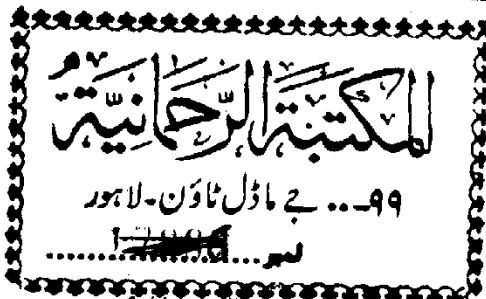 المكتبة الرحمانية
۹۹... جے ماڈل ٹاؤن۔ لاہور
نمبر....................